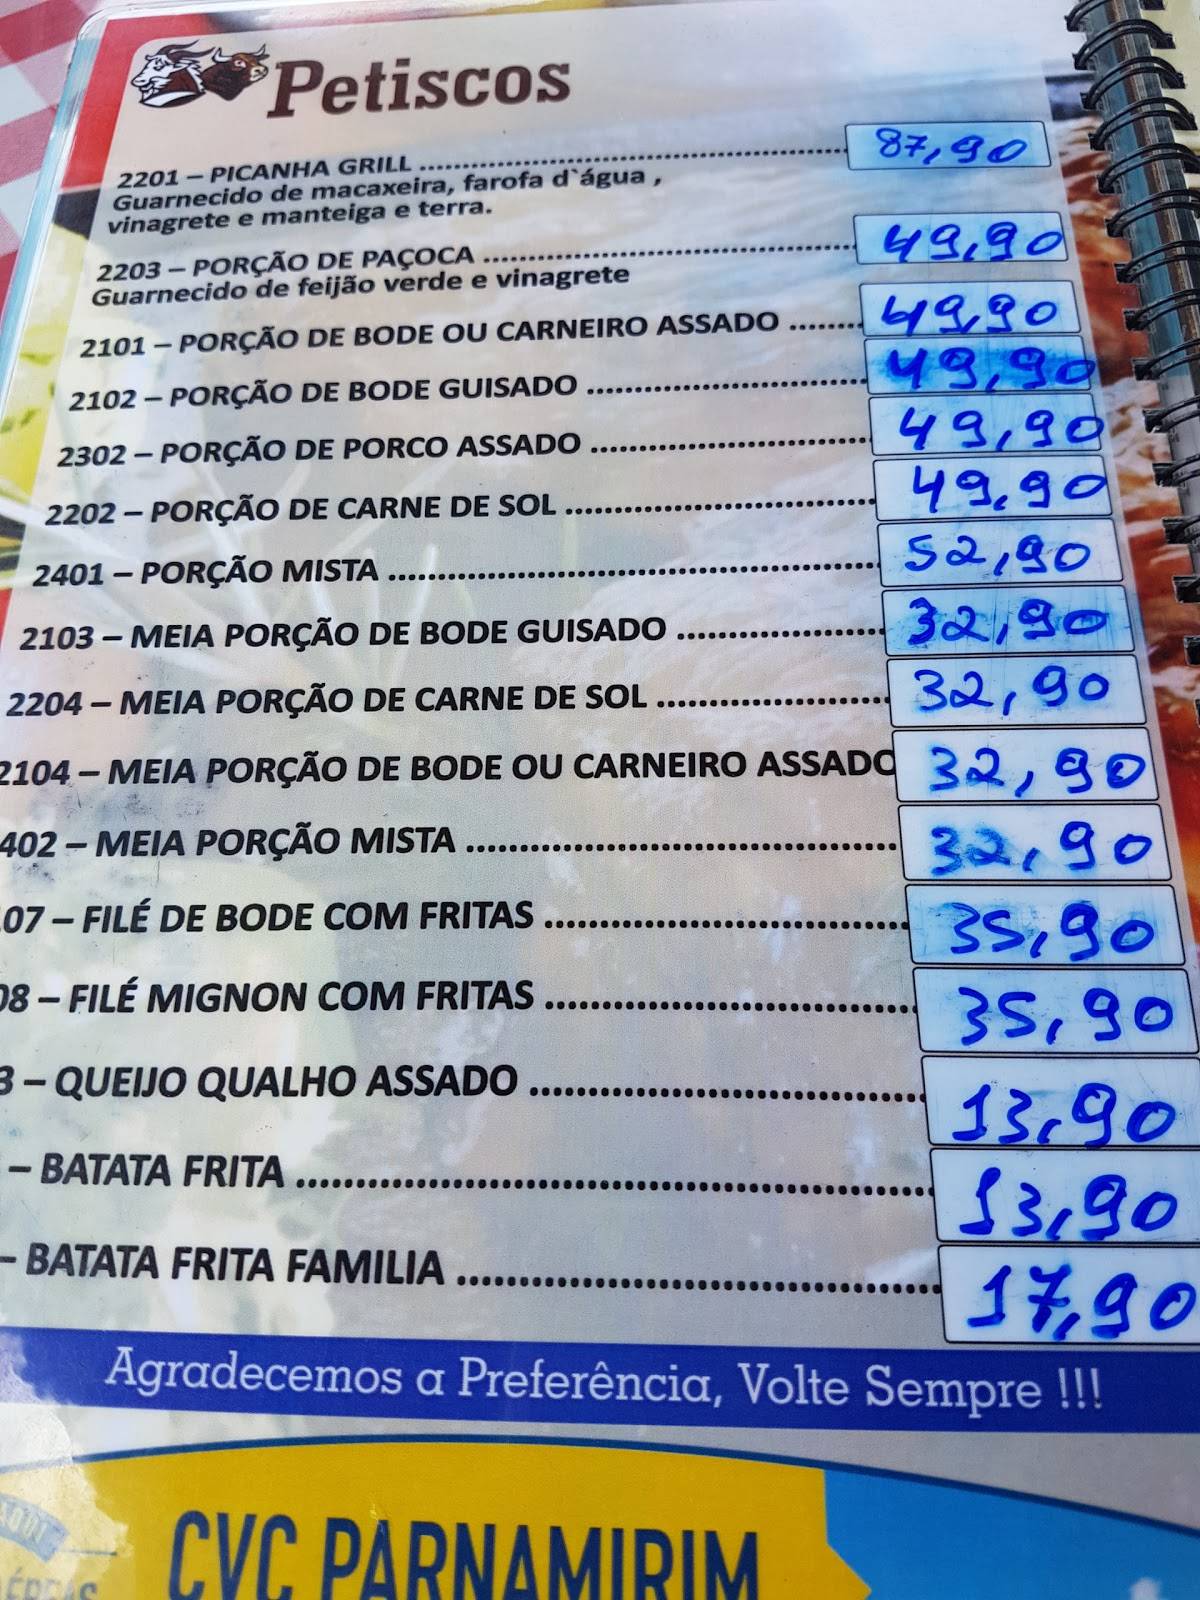 Petiscos
2201 – PICANHA GRILL ........ 87,90
Guarnecido de macaxeira, farofa d`água ,
vinagrete e manteiga e terra.
2203 – PORÇÃO DE PAÇOCA ........ 49,90
Guarnecido de feijão verde e vinagrete
2101 – PORÇÃO DE BODE OU CARNEIRO ASSADO ........ 49,90
2102 – PORÇÃO DE BODE GUISADO ........ 49,90
2302 – PORÇÃO DE PORCO ASSADO ........ 49,90
2202 – PORÇÃO DE CARNE DE SOL ........ 49,90
2401 – PORÇÃO MISTA ........ 52,90
2103 – MEIA PORÇÃO DE BODE GUISADO ........ 32,90
2204 – MEIA PORÇÃO DE CARNE DE SOL ........ 32,90
2104 – MEIA PORÇÃO DE BODE OU CARNEIRO ASSADO 32,90
402 – MEIA PORÇÃO MISTA ........ 32,90
07 – FILÉ DE BODE COM FRITAS ........ 35,90
08 – FILÉ MIGNON COM FRITAS ........ 35,90
3 – QUEIJO QUALHO ASSADO ........ 13,90
– BATATA FRITA ........ 13,90
– BATATA FRITA FAMILIA ........ 17,90
Agradecemos a Preferência, Volte Sempre !!!
CVC PARNAMIRIM